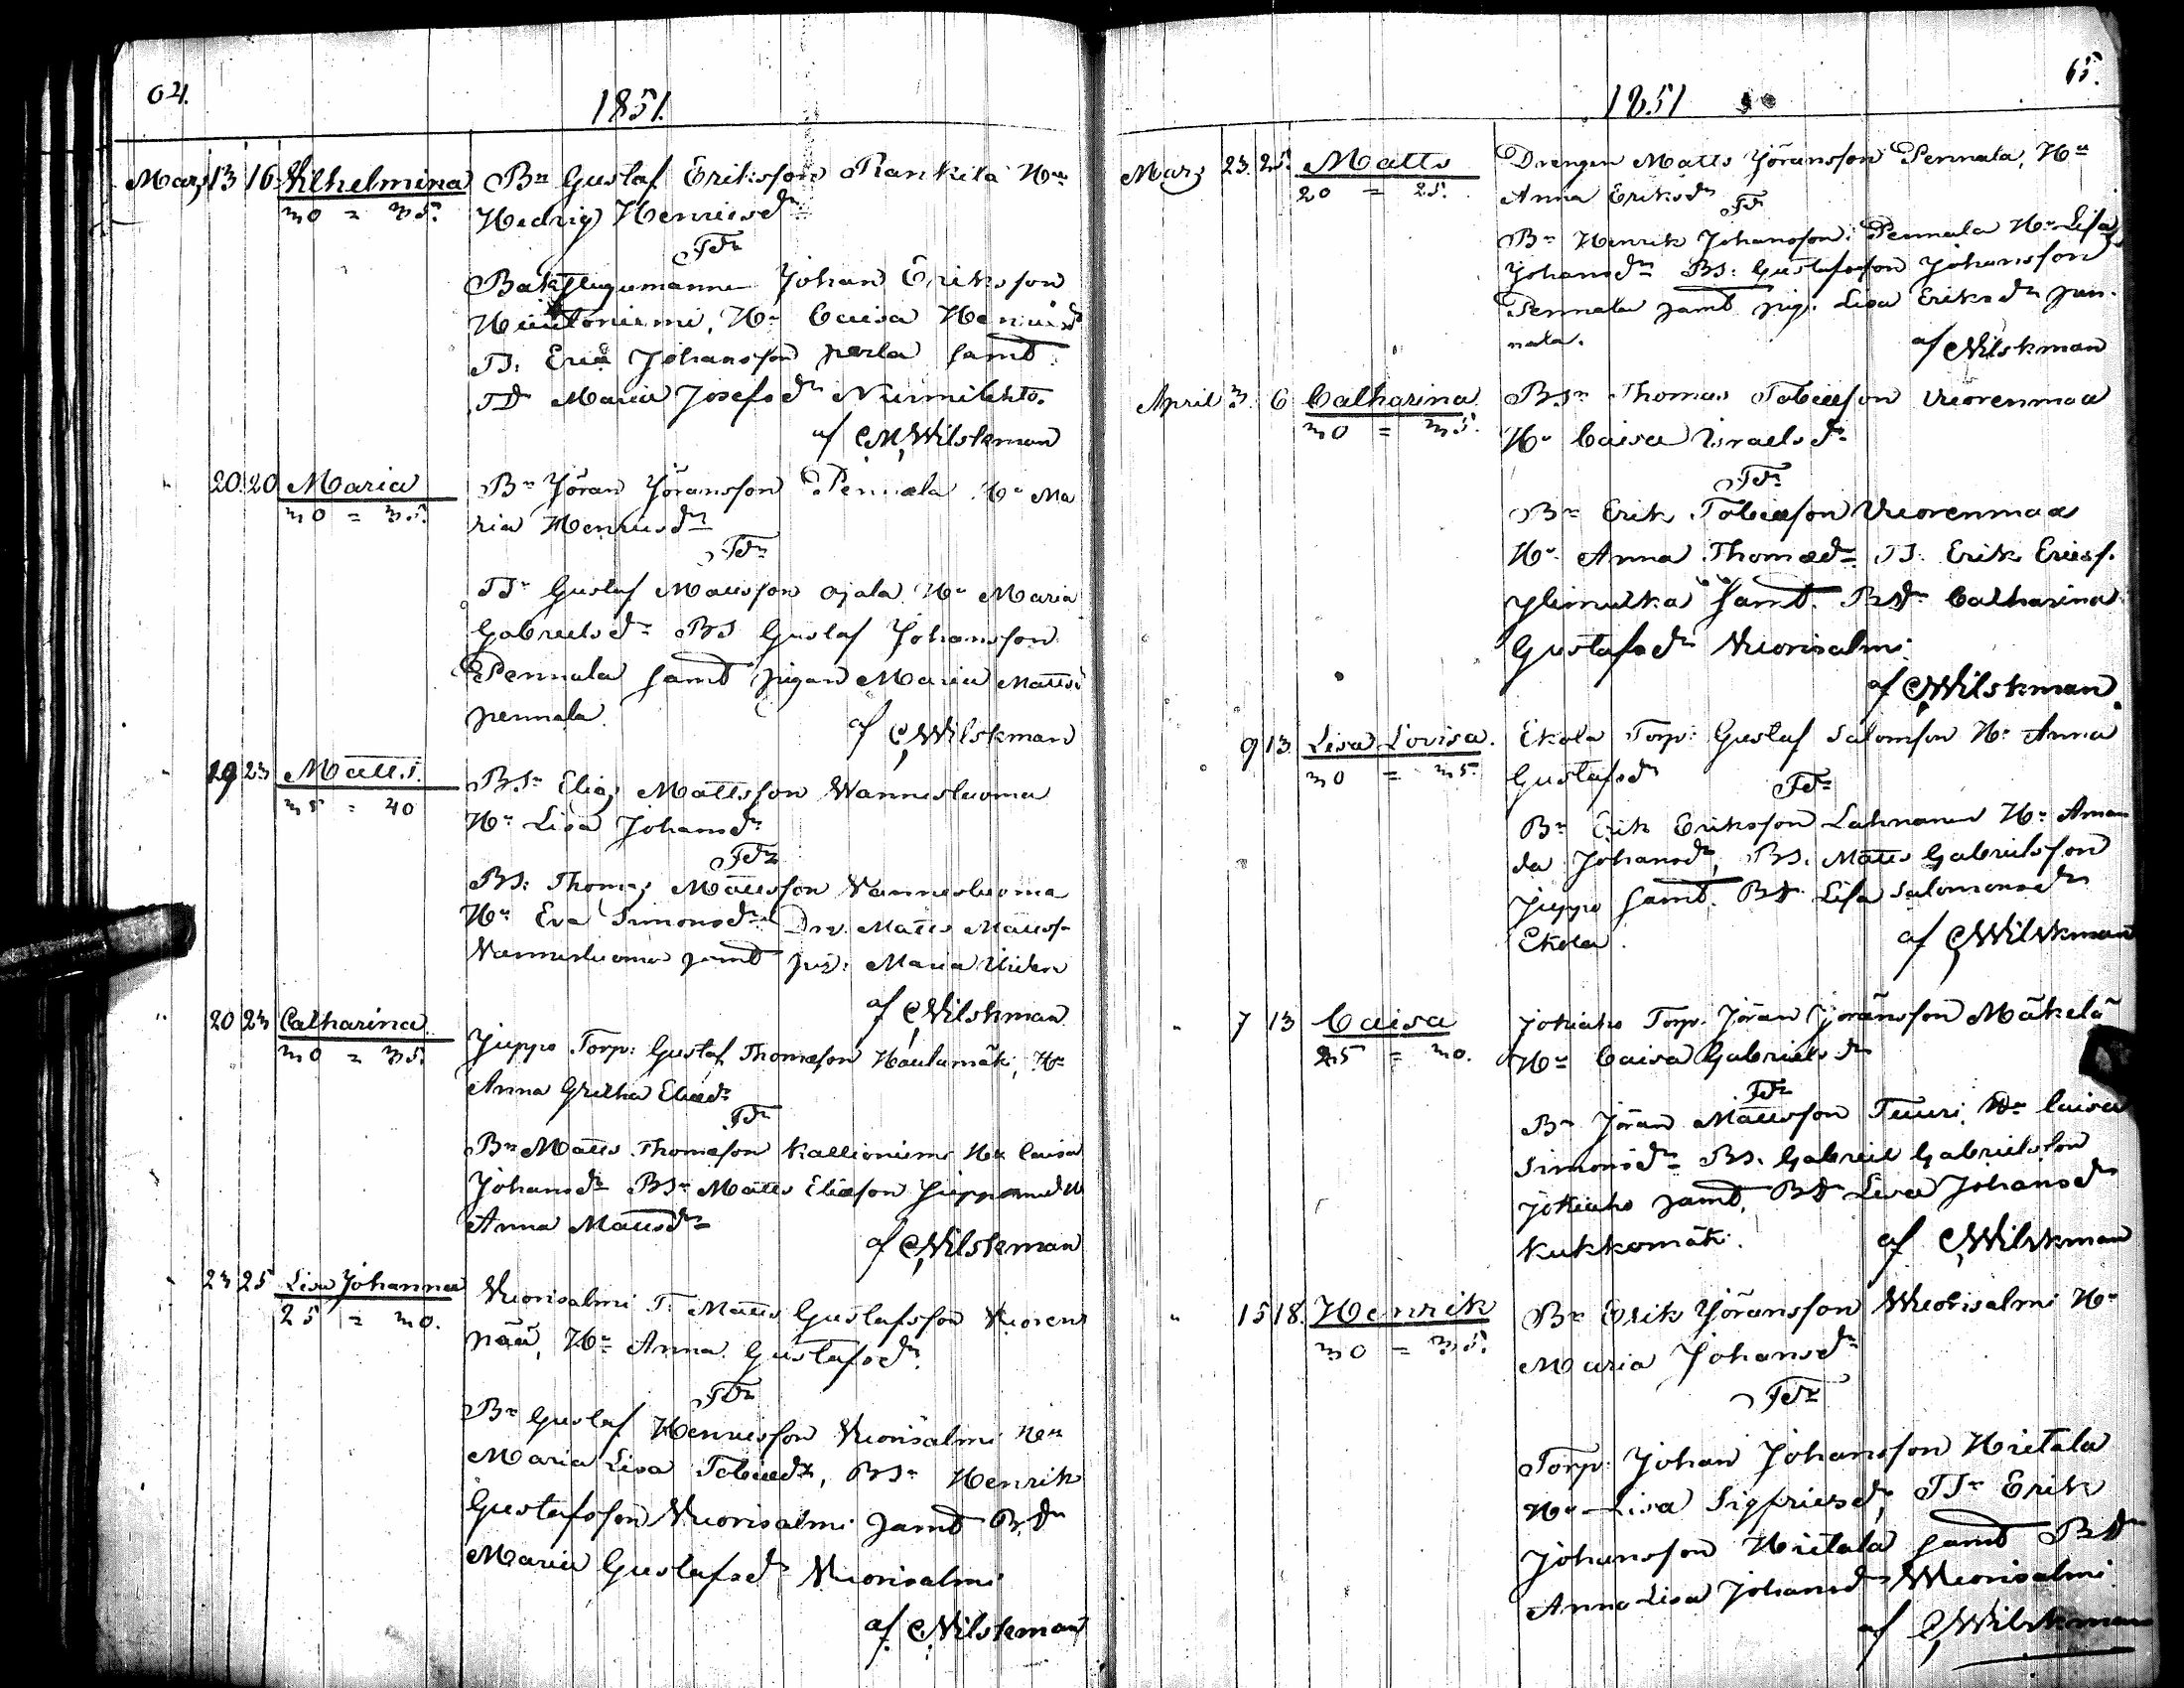 64.
1851.
Mars 13 16 Vilhelmina Bn Gustaf Eriksson Rankila Hu
30 = 35. Hedvig Henricsdr
Fdr
Johan Eriksson
Hietoniemi, Hu Caisa Henricsd
TS: Eric Johansson perla samt
TD Maria Josefsdr Nurmilehto.
af CWilskman
20. 20 Maria Bn Jöran Jöransson Pennala Hu Ma
30 = 35. ria Henricsdr
Fdr
TSn Gustaf Mattsson Ojala Hu Maria
Gabrielsdr BS Gustaf Johansson
Pennala samt pigan Maria Mattsd
pennala.
af CWilskman
19 23 Matts. BSn Elias Mattsson Vannesluoma
35 = 40 Hu Lisa Johansdr
Fdr
BS: Thomas Mattsson Vannesluoma
Hu Eva Simonsdr Dr. Matts Mattss.
Vannesluoma samt pig: Maria
af CWilskman
20 23 Catharina Juppo Torp: Gustaf Thomasson Haulamäki, Hu
30 = 35. Anna Gretha Eliædr
Fdr
Bn Matts Thomasson Kallioniemi Hu Caisa
Johansdr BSn Matts Eliasson Juppo med H
Anna Mattsdr
af CWilskman
23 25 Lisa Johanna Vuorisalmi T. Matts Gustafsson Vuoren
25 = 30. pää, Hu Anna Gustafsdr.
Fdr
Bn Gustaf Henricsson Vuorisalmi Hu
Maria Lisa Tobiædr, BSn Henrik
Gustafsson Vuorisalmi samt BDr
Maria Gustafsdr Vuorisalmi
af CWilskman
65.
1851
Mars 23. 25. Matts Drengen Matts Jöransson Pennala, Hu
20 = 25. Anna Eriksdr
Fdr
Bn Henrik Johansson Pennala Hu Lisa
Johansdr BS: Gustafsson Johansson
Pennala samt pig: Lisa Eriksdr pen-
nala.
af CWilskman
April 3. 6 Catharina BSn Thomas Tobiasson Vuorenmaa
30 = 35. Hu Caisa Israelsdr
Fdr
Bn Erik Tobiasson Vuorenmaa
Hu Anna Thomædr TS. Erik Ericss.
ylimulka samt. BDr Catharina
Gustafsdr Vuorisalmi
af CWilskman.
9 13 Lisa Lovisa. Ekola Torp: Gustaf Salomsson Hu Anna
30 = 35. Gustafsdr
Fdr
Bn Erik Eriksson Lahnanen Hu Aman
da Johansdr, BS. Matts Gabrielsson
Juppo samt. BDr Lisa Salomonsdr
Ekola.
af CWilskman
7 13 Caisa Jokiaho Torp. Jöran Jöransson Mäkelä
25 = 30. Hu Caisa Gabrielsdr
Fdr
Bn Jöran Mattsson Tuuri, Hu Caisa
Simonsdr BS. Gabriel Gabrielsson
Jokiaho samt. BDr Lisa Johansdr
Kukkomäki.
af CWilskman
15 18. Henrik Bn Erik Jöransson Vuorisalmi Hu
30 = 35. Maria Johansdr
Fdr
Torp: Johan Johansson Hietala
Hu Lisa Sigfriedsdr, TSn Erik
Johansson Hietala samt BDr
Anna Lisa Johansdr Vuorisalmi
af CWilskman